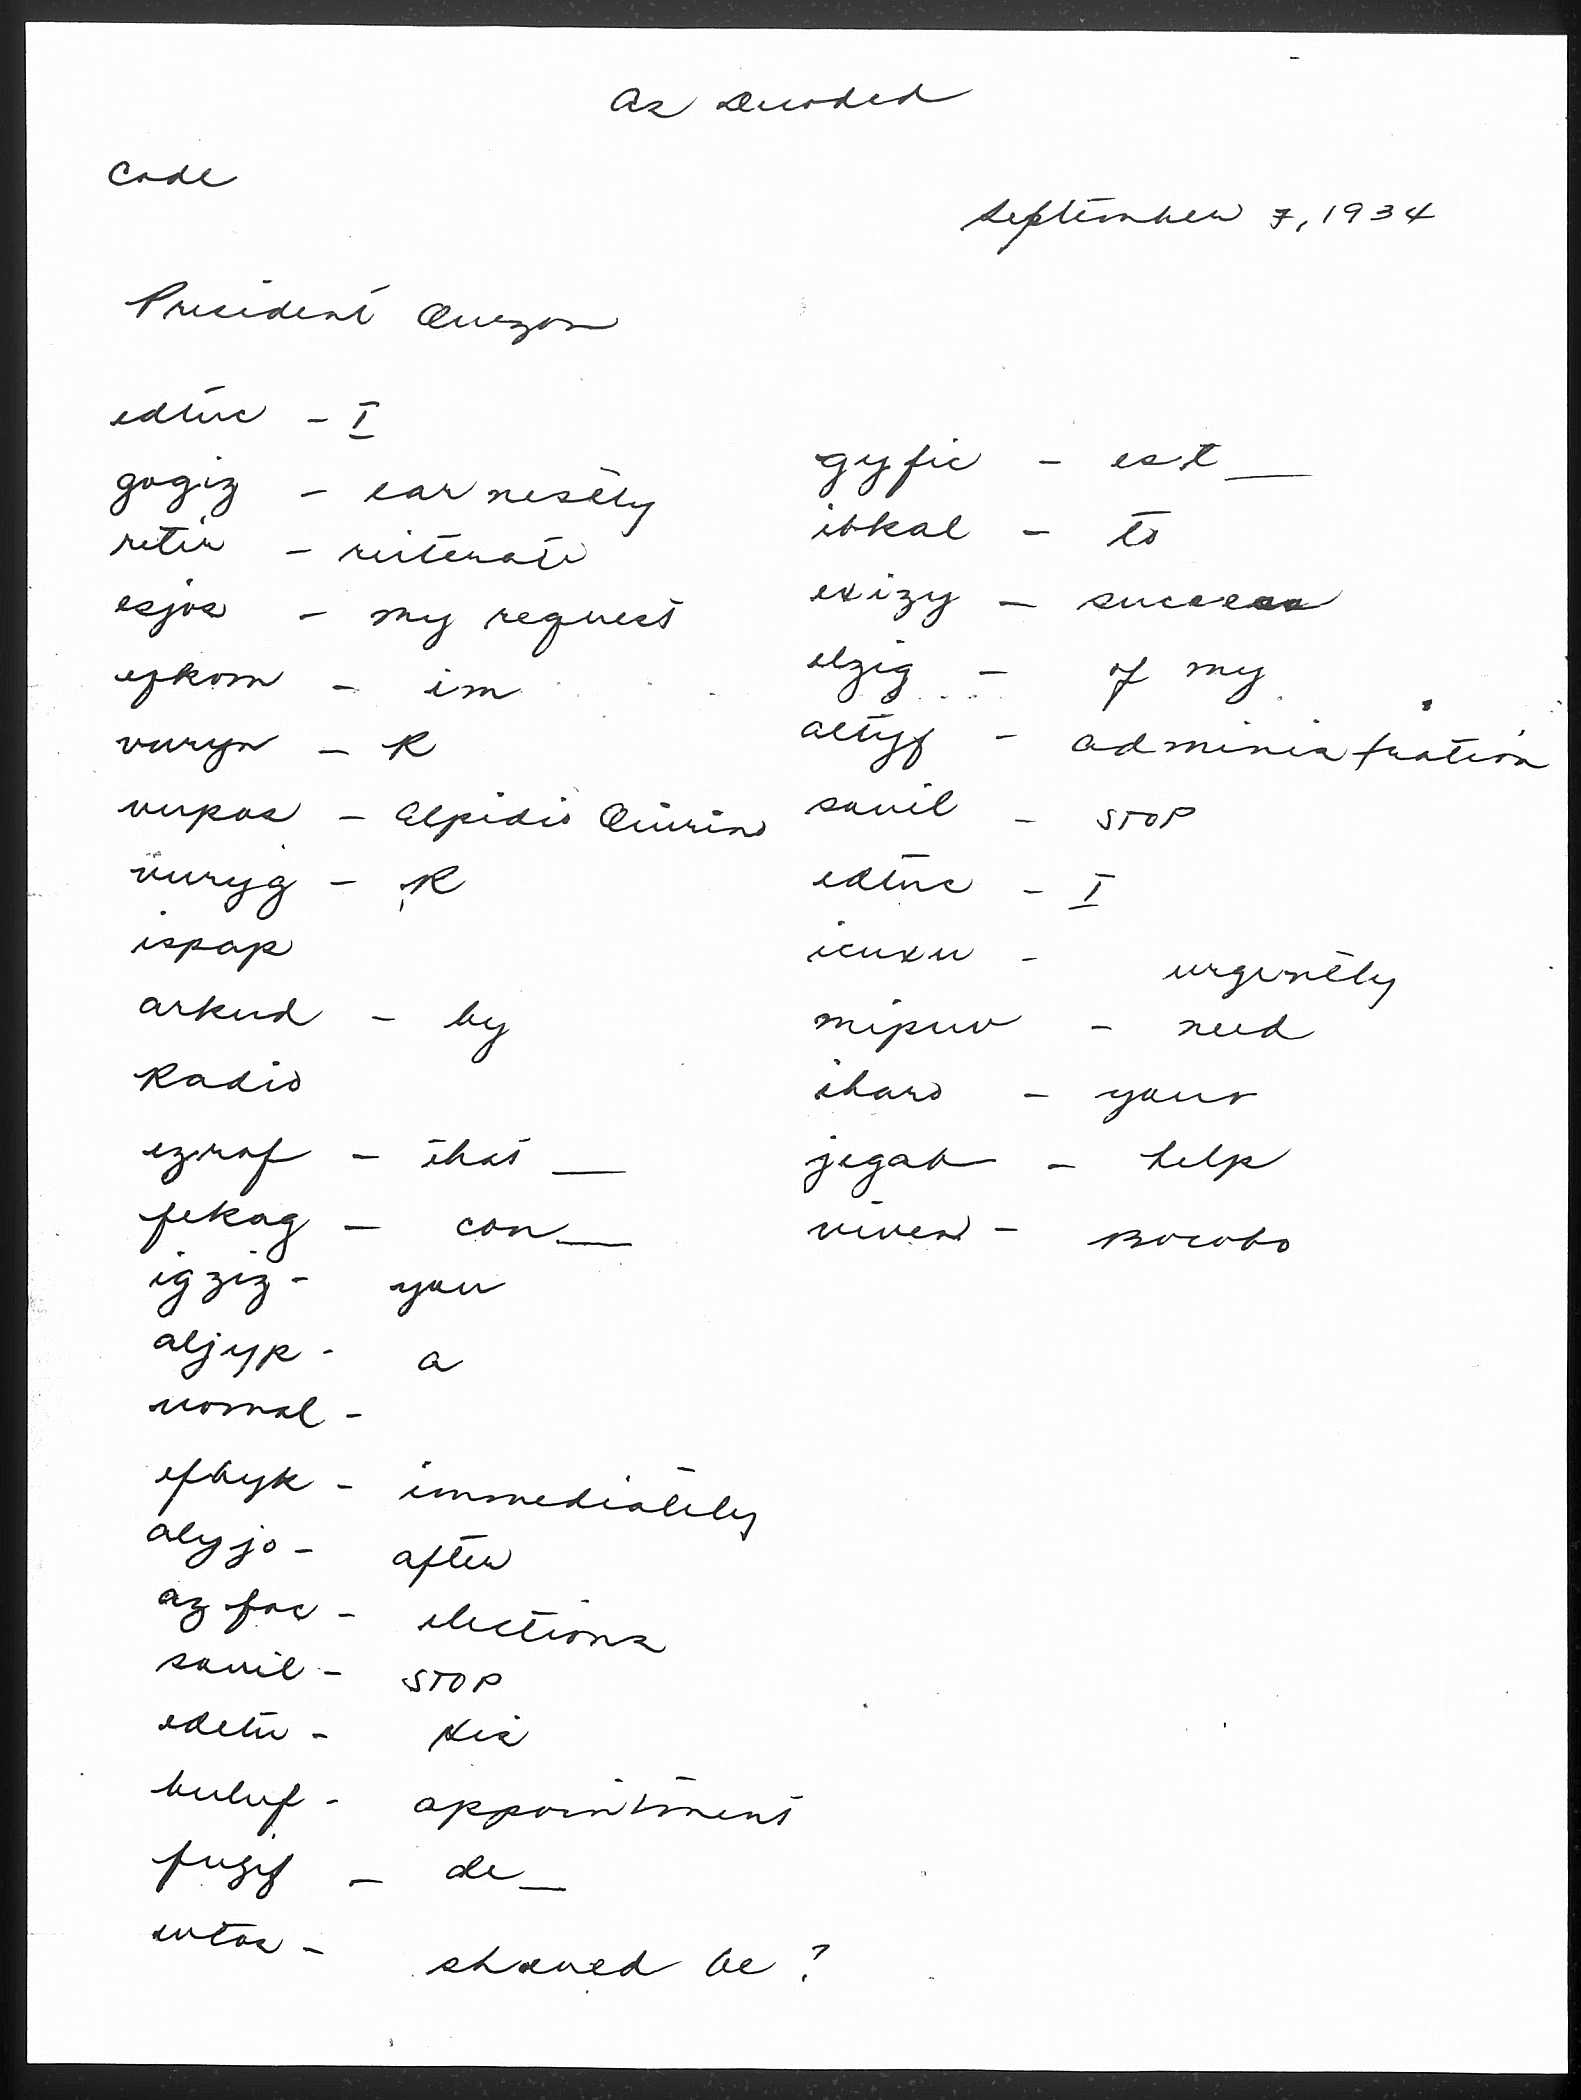 As Decoded
Code
September 7, 1934
President Quezon
edtuc - I
gogiz - earnestly
retir - reiterate
esjos - my request
efkom - im
vuryn - R
vupas - Elpidio Quirino
vuryg - R
ispap
arkud - by
Radio
ezraf - that __
fekag - con__
igziz - you
aljyp - a
nomal -
efbyk - immediately
alyjo - after
azfoc - elections
sovil - STOP
edetu - His
buluf - appointment
fugif - de__
evtos - should be ?
gyfic - est__
ibkal - to
exizy - success
elzig - of my
altyf - administration
sovil - STOP
edtuc - I
icuxu - urgently
mipuv - need
iharo - your
jegab - help
viven - Bocobo